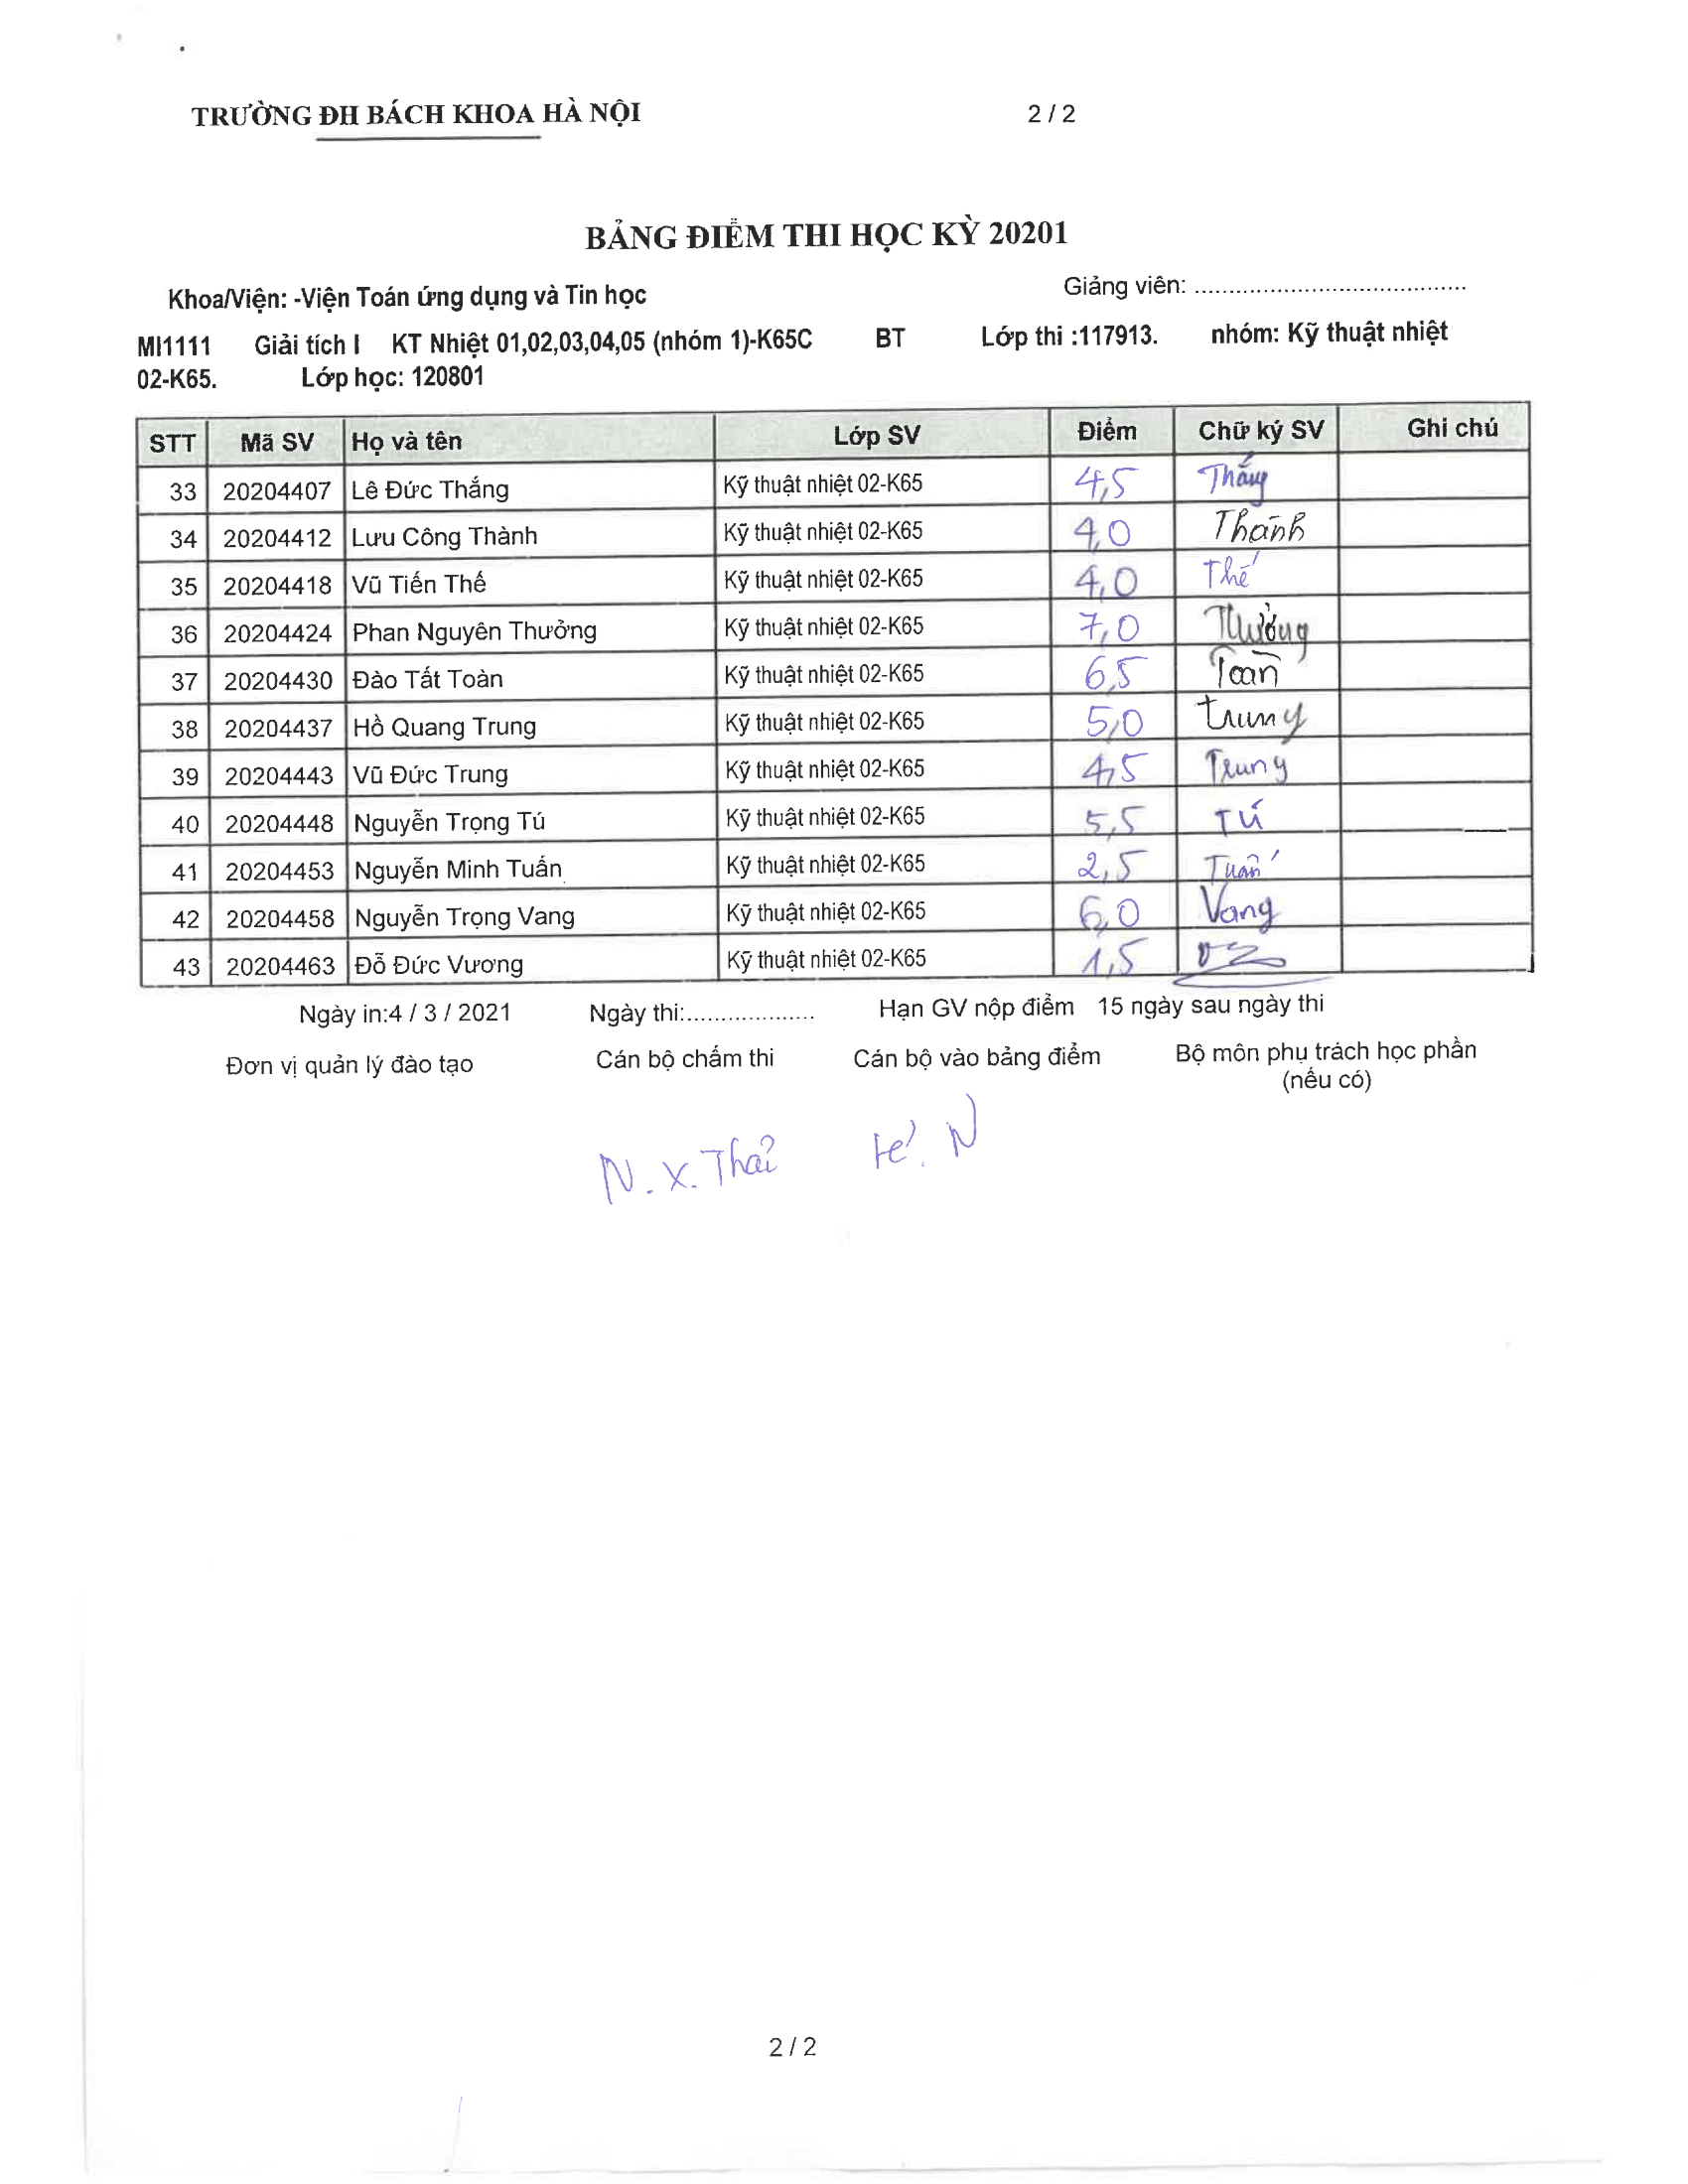 TRƯỜNG ĐH BÁCH KHOA HÀ NỘI 2 / 2
BẢNG ĐIỂM THI HỌC KỲ 20201
Khoa/Viện: -Viện Toán ứng dụng và Tin học Giảng viên: ........................................
MI1111 Giải tích I KT Nhiệt 01,02,03,04,05 (nhóm 1)-K65C BT Lớp thi :117913. nhóm: Kỹ thuật nhiệt
02-K65. Lớp học: 120801
STT Mã SV Họ và tên Lớp SV Điểm Chữ ký SV Ghi chú
33 20204407 Lê Đức Thắng Kỹ thuật nhiệt 02-K65 4,5 Thắng
34 20204412 Lưu Công Thành Kỹ thuật nhiệt 02-K65 4,0 Thành
35 20204418 Vũ Tiến Thế Kỹ thuật nhiệt 02-K65 4,0 Thế
36 20204424 Phan Nguyên Thưởng Kỹ thuật nhiệt 02-K65 7,0 Thưởng
37 20204430 Đào Tất Toàn Kỹ thuật nhiệt 02-K65 6,5 Toàn
38 20204437 Hồ Quang Trung Kỹ thuật nhiệt 02-K65 5,0 trung
39 20204443 Vũ Đức Trung Kỹ thuật nhiệt 02-K65 4,5 Trung
40 20204448 Nguyễn Trọng Tú Kỹ thuật nhiệt 02-K65 5,5 Tú
41 20204453 Nguyễn Minh Tuấn Kỹ thuật nhiệt 02-K65 2,5 Tuấn
42 20204458 Nguyễn Trọng Vang Kỹ thuật nhiệt 02-K65 6,0 Vang
43 20204463 Đỗ Đức Vương Kỹ thuật nhiệt 02-K65 1,5
Ngày in:4 / 3 / 2021 Ngày thi:................... Hạn GV nộp điểm 15 ngày sau ngày thi
Đơn vị quản lý đào tạo Cán bộ chấm thi Cán bộ vào bảng điểm Bộ môn phụ trách học phần
(nếu có)
N. X. Thải
2 / 2